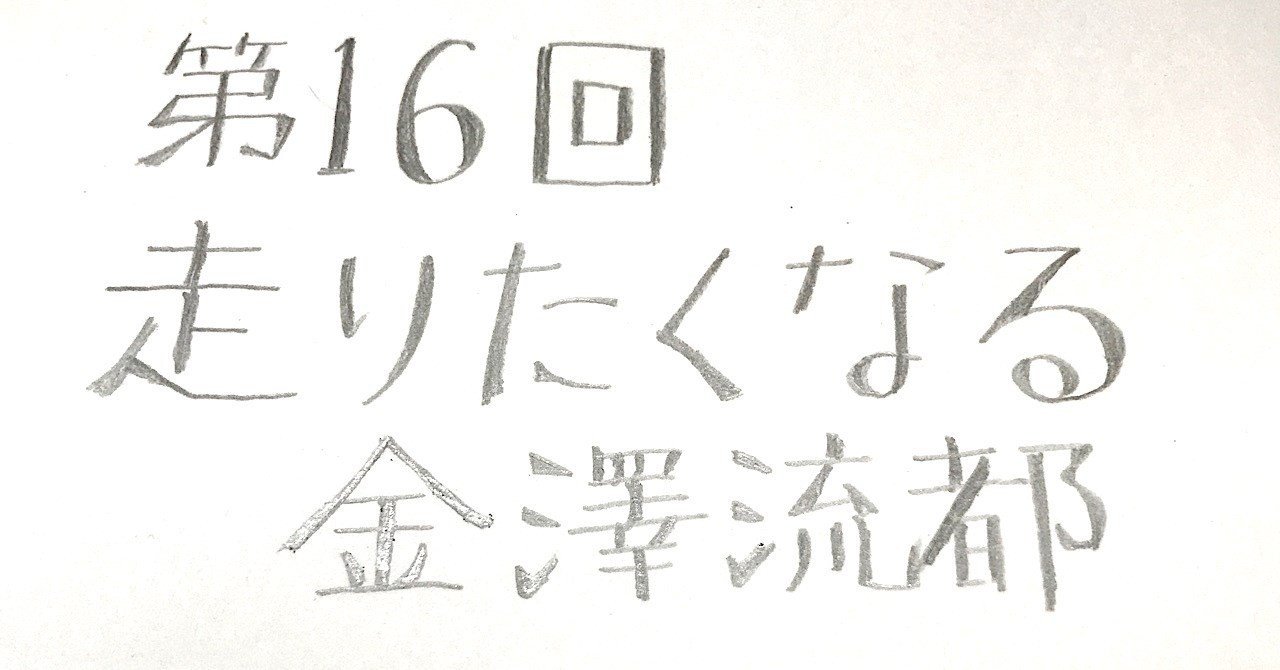 第16回
走りたくなる
金澤流都